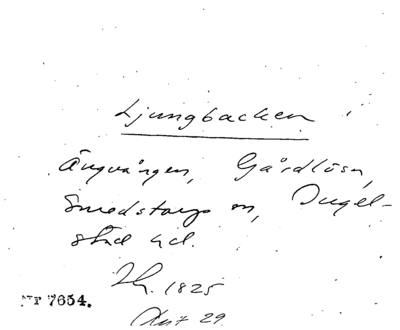 Ljungbacken
Ängvången, Gårdlösa,
Smedstorps sn, Ingel-
stad hd.
1825
Nr 7654.
29